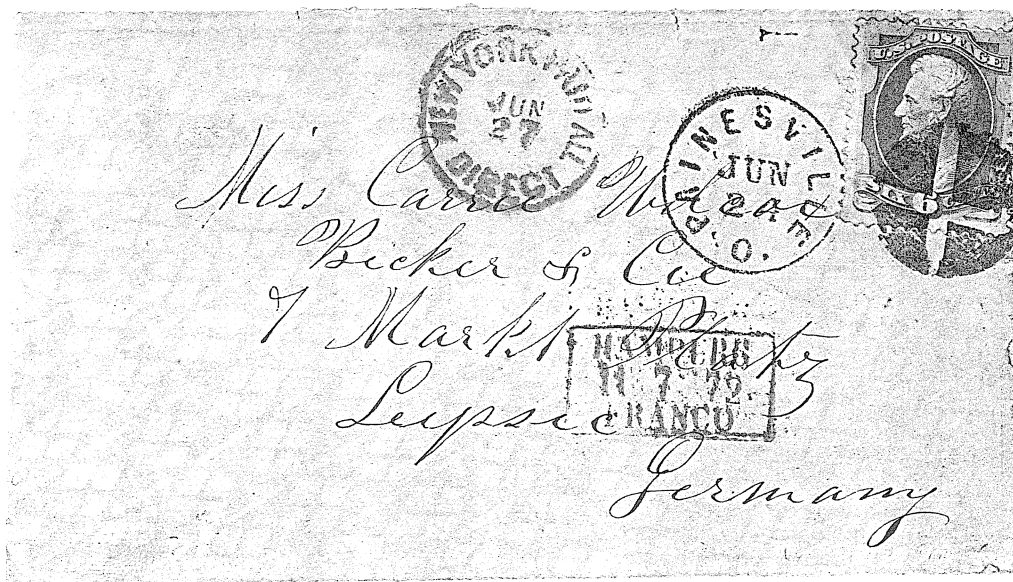 NEW YORK PAID ALL
DIRECT
JUN
27
PAINESVILLE
O.
JUN
24
U.S. POSTAGE
Miss Carrie Wilcox
Becker & Cie
7 Markt Platz
Leipsic
Germany
HAMBURG
11 7 72
FRANCO